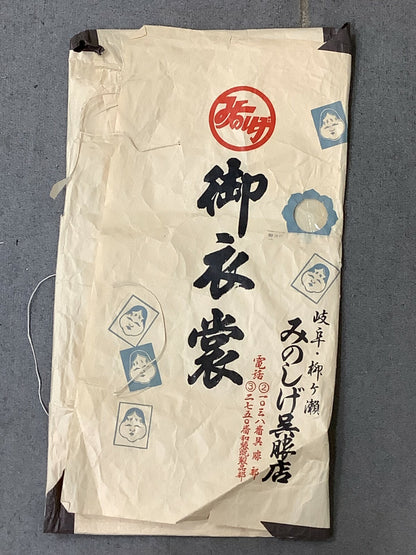 みのしげ
御衣裳
岐阜・柳ヶ瀬
みのしげ呉服店
電話
②一〇三八番呉服部
③二七五〇番和装既製品部